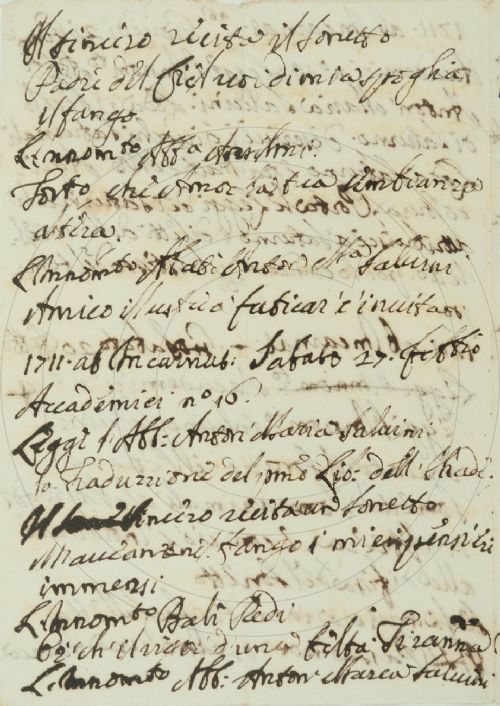 Il sincero recita il sonetto
Padre del Ciel voi di mia spoglia
il fango.
L'Innom:to Abb:e Anselmi.
Sotto che Amor la tua sembianza
altera.
L'Innom:to Abate Anton M:a Salvini
Amico il                faticar e invitar
1711. ab Incarnat: Sabato 27. Febb:o
Accademici n:o 16.
Leggè l'Abb: Anton Maria Salvini
la traduzzione del pmo Lio: dell' Iliade.
Il sincero recita un sonetto
                 fango i miei pensieri
immersi
L'Innom:to Bali Redi
                     d'una      Tiranna
L'Innom:to Abb: Anton Maria Salvini